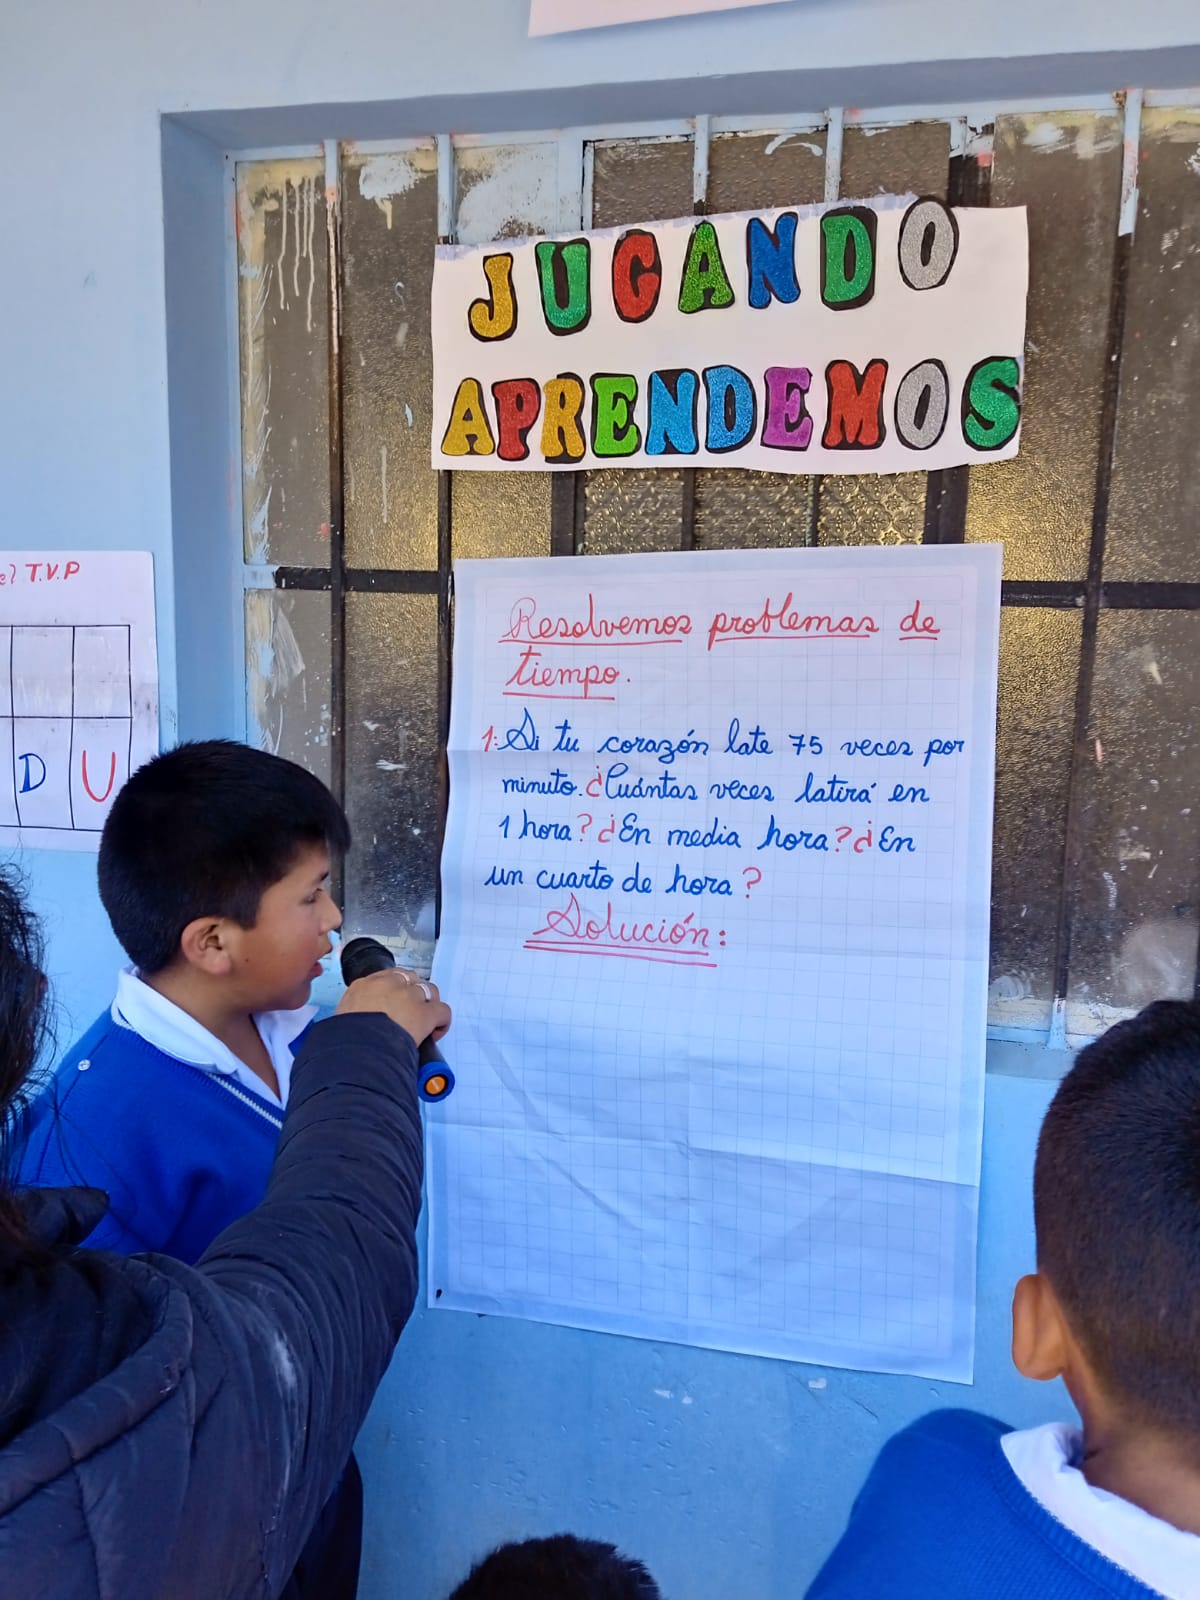 JUGANDO
APRENDEMOS
T.V.P
D U
Resolvemos problemas de
tiempo.
1. Si tu corazón late 75 veces por
minuto. ¿Cuántas veces latirá en
1 hora? ¿En media hora? ¿En
un cuarto de hora?
Solución: